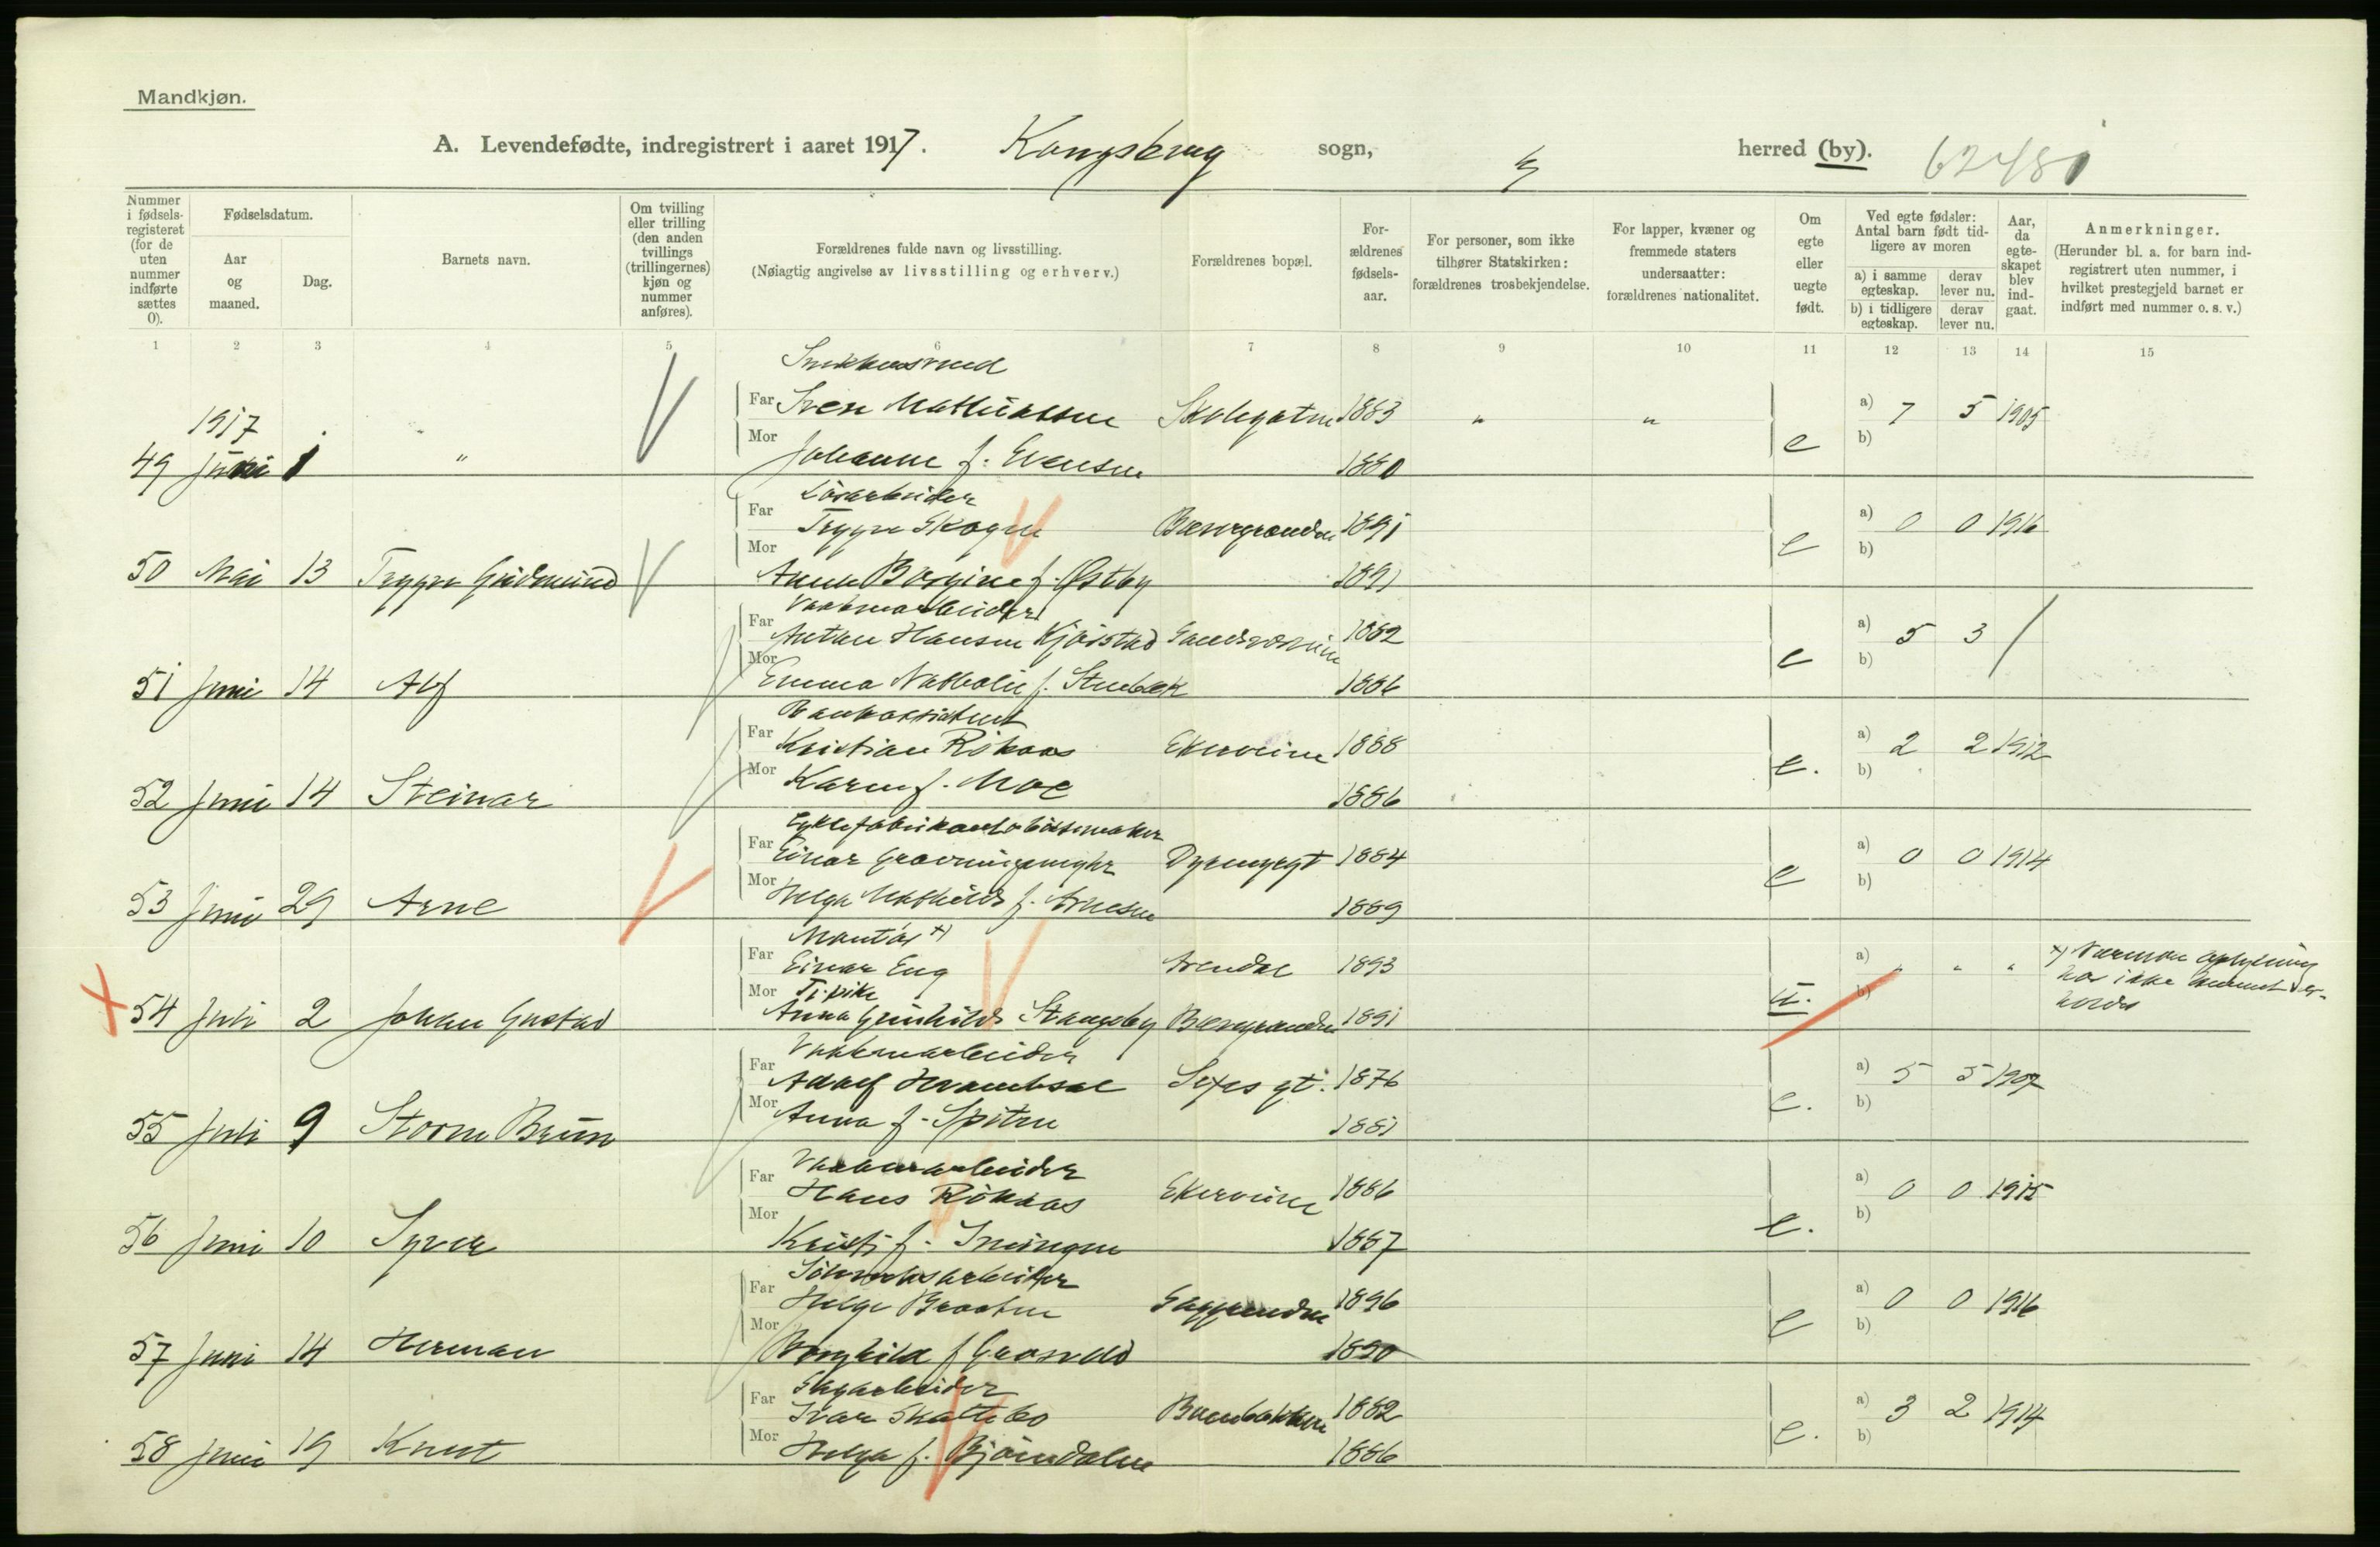 Mandkjøn.
A. Levendefødte, indregistrert i aaret 1917. Kongsberg sogn, herred (by). 62481
Nummer i fødsels-registeret (for de uten nummer indførte sættes 0).
Fødselsdatum.
Aar og maaned.
Dag.
Barnets navn.
Om tvilling eller trilling (den anden tvillings (trillingernes) kjøn og nummer anføres).
Forældrenes fulde navn og livsstilling.
(Nøiagtig angivelse av livsstilling og erhverv.)
Forældrenes bopæl.
For-ældrenes fødsels-aar.
For personer, som ikke tilhører Statskirken: forældrenes trosbekjendelse.
For lapper, kvæner og fremmede staters undersaatter: forældrenes nationalitet.
Om egte eller uegte født.
Ved egte fødsler: Antal barn født tid-ligere av moren
a) i samme egteskap.
derav lever nu.
b) i tidligere egteskap.
derav lever nu.
Aar, da egte-skapet blev ind-gaat.
Anmerkninger.
(Herunder bl. a. for barn ind-registrert uten nummer, i hvilket prestegjeld barnet er indført med nummer o. s. v.)
1 2 3 4 5 6 7 8 9 10 11 12 13 14 15
Far Sven Mathiassen Skolegaten 1883 " " a) 7 5 1905
1917
Mor e b)
49 Juni 1 " Johanne f. Evensen 1880
Løsarbeider
Far Trygve Skogen 1891 a) 0 0 1916
Mor e b)
50 Mai 13 Trygve Gudmund Anna Borgine f. Østby 1891
Vaabenarbeider
Far Anton Hansen Kjørstad 1882 a) 5 3 /
Mor e b)
51 Juni 14 Alf Emma Nathalie f. Stubæk 1886
Bankassistent
Far Kristian Rikaas Ekerveien 1888 a) 2 2 1912
Mor Karen f. Moe e. b)
52 Juni 14 Steinar 1886
Cyklefabrikant & bøssemaker
Far Einar Dyrmyrgt 1884 a) 0 0 1914
Mor e b)
53 Juni 29 Arne Helga Mathilde f. Arnesen 1889
Montør x)
Far Einar Eng Arendal 1893 a) " " " x) Nærmere oplysning
Mor Tj.pike u. b) har ikke kunnet er-
54 Juli 2 Johan Gustav Anna Gunhild Stangeby 1891 holdes
Vaabenarbeider
Far Adolf Sexes gt. 1876 a) 5 5 1907
Mor e. b)
55 Juli 9 Storm Brun Anna f. Spiten 1881
Vaabenarbeider
Far Hans Rikaas Ekerveien 1886 a) 0 0 1915
Mor e. b)
56 Juni 10 Syver Kristi f. 1887
Far Helge Braaten 1896 a) 0 0 1916
Mor e b)
57 Juni 14 Herman Borghild f 1890
Sagarbeider
Far Ivar Skattebo 1882 a) 3 2 1914
Mor e. b)
58 Juni 19 Knut Helga f. Bjørndalen 1886